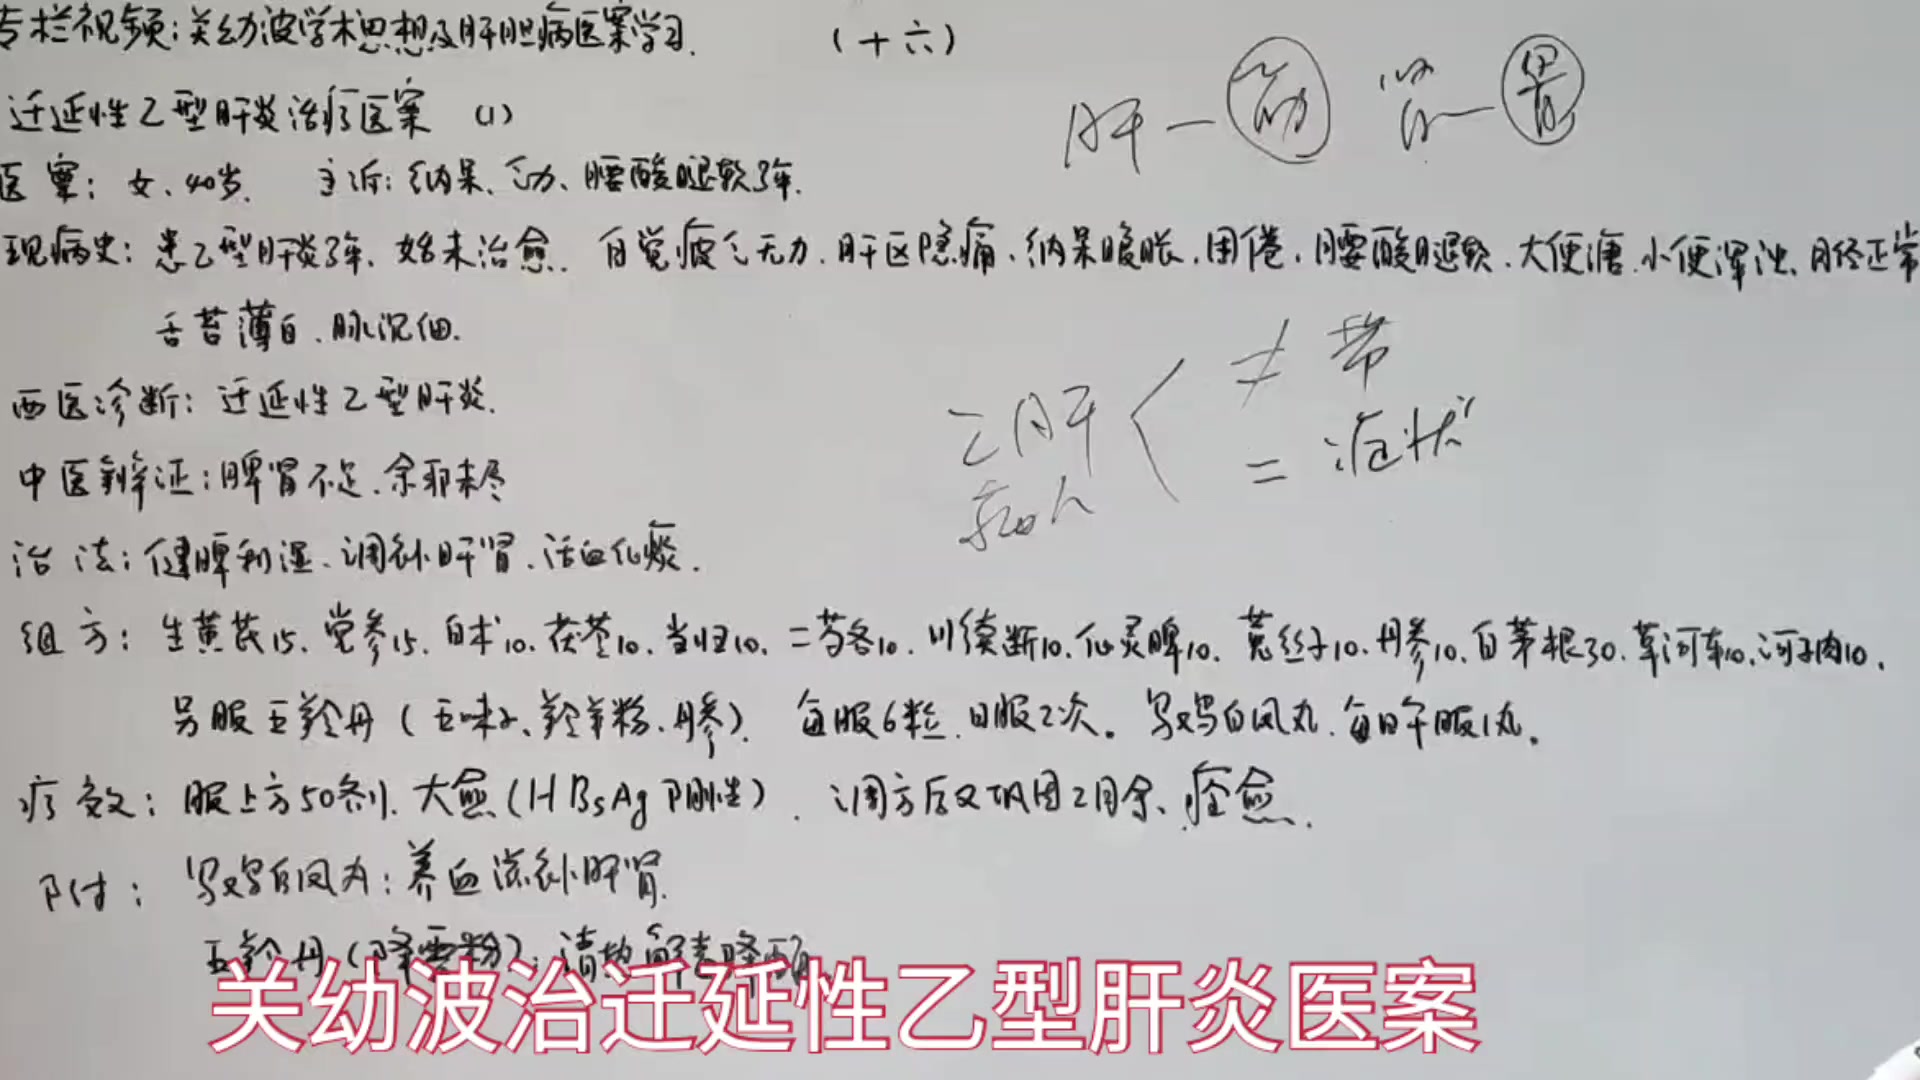 专栏视频：关幼波学术思想及肝胆病医案学习. （十六）
迁延性乙型肝炎治疗医案 （1）
医案：女、40岁. 主诉：纳呆、乏力、腰酸腿软3年.
现病史：患乙型肝炎3年、始未治愈. 自觉疲乏无力、肝区隐痛、纳呆腹胀、困倦、腰酸腿软、大便溏、小便浑浊、月经正常
舌苔薄白、脉沉细.
西医诊断：迁延性乙型肝炎.
中医辨证：脾肾不足、余邪未尽
治法：健脾利湿、调补肝肾、活血化痰.
组方：生黄芪15、党参15、白术10、茯苓10、当归10、二芍各10、川续断10、仙灵脾10、菟丝子10、丹参10、白茅根30、草河车10、河子肉10、
另服五羚丹（五味子、羚羊粉、丹参）、每服6粒、日服2次。乌鸡白凤丸、每日午服1丸。
疗效：服上方50剂、大愈（HBsAg阴性）. 调方后又巩固2月余、痊愈.
附：乌鸡白凤丸：养血滋补肝肾.
五羚丹（降
肝一筋 肾一骨
乙肝 < ≠ 带
= 症状
关幼波治迁延性乙型肝炎医案